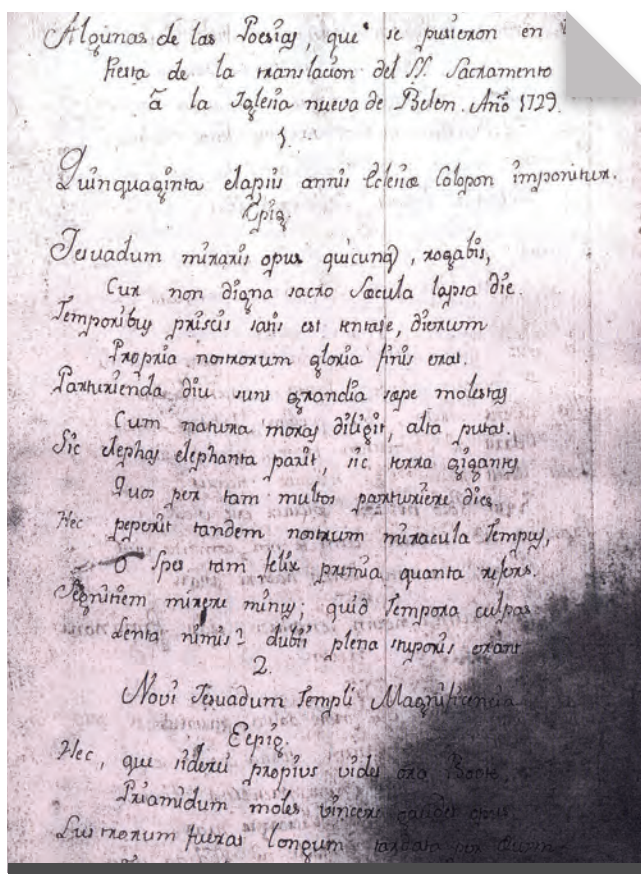 Algunas de las Poesias, que se pusieron en
fiesta de la translacion del SS. Sacramento
â la Iglesia nueva de Belen. Año 1729.
1.
Quinquaginta elapsis annis Eclesiæ Colopon imponitur.
Epig.
Jesuadum miraris opus quicunq, rogabis,
Cur non digna sacro Sæcula lapsa die.
Temporibus priscis satis est tentase, dierum
Propria nostrorum gloria finis erat.
Parturienda diu sunt grandia sæpe molestas
Cum natura moras diligit, alta putat.
Sic elephas elephanta parit, sic terra gigantes
Quos per tam multos parturiere dies
Hec peperit tandem nostrum miracula Tempus,
O Spes tam felix premia quanta refers.
Segnitiem mirere minus; quid Tempora culpas
Lenta nimis? dubii plena stuporis erant
2.
Novi Jesuadum Templi Magnificencia
Eepig.
Hec, que siderei propius vides ora
Priamidum moles vincere opus
Lustrorum fueras longum tardata